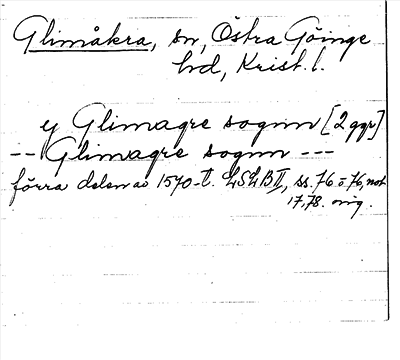 Glimåkra, sn, Östra Göinge
hd, Krist. l.
y Glimagre sognn [2 ggr]
-- Glimagre sognn ---
förra delen av 1570-t. LSLB II, ss. 76 o 76, not
17, 78. orig.